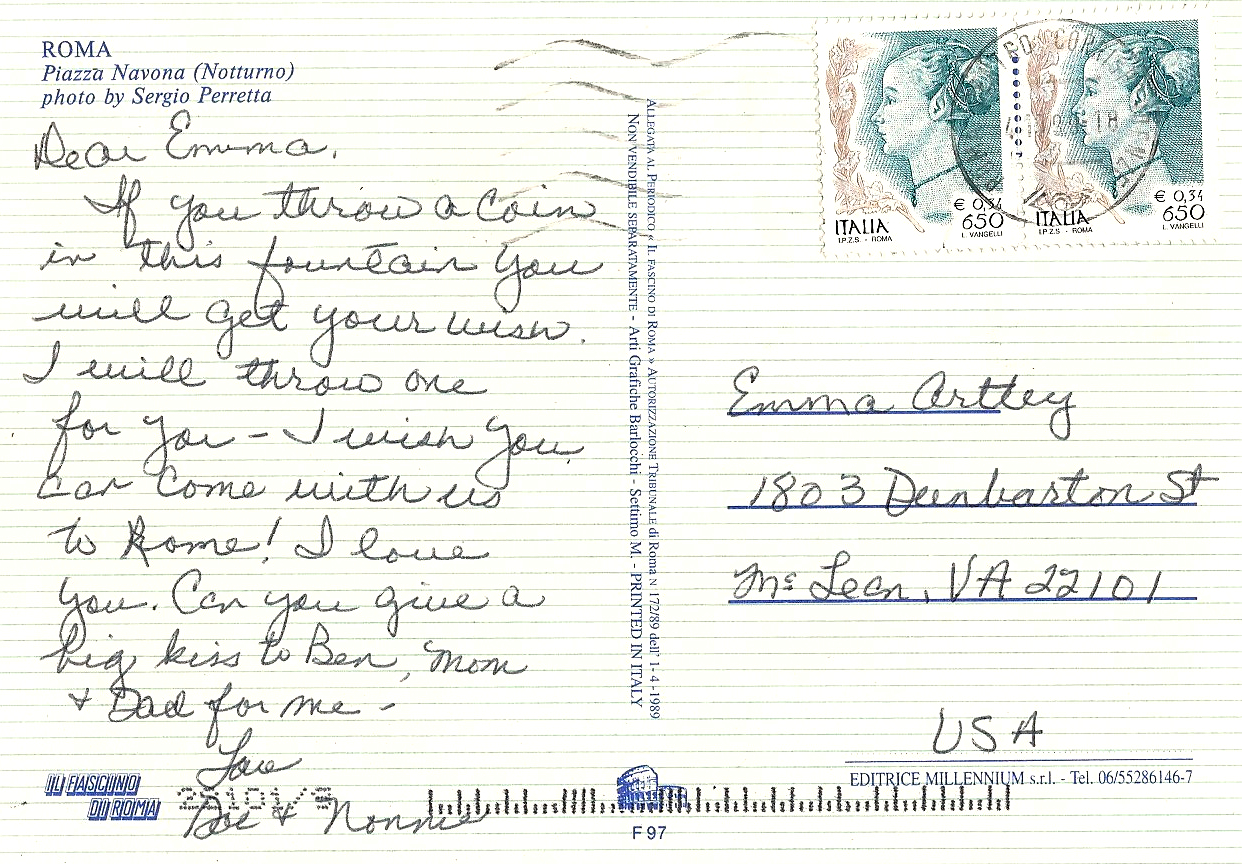 ROMA
Piazza Navona (Notturno)
photo by Sergio Perretta
Dear Emma,
If you throw a coin
in this fountain you
will get your wish.
I will throw one
for you – I wish you
can come with us
to Rome! I love
you. Can you give a
big kiss to Ben, Mom
+ Dad for me –
Love
& Nonnie
IL FASCINO
DI ROMA
ALLEGATA AL PERIODICO « IL FASCINO DI ROMA » AUTORIZZAZIONE TRIBUNALE di Roma N 172/89 dell' 1-4-1989
NON VENDIBILE SEPARATAMENTE - Arti Grafiche Barlocchi - Settimo M. - PRINTED IN ITALY
F 97
ITALIA
€ 0,34
650
I.P.Z.S. - ROMA
L. VANGELLI
ITALIA
€ 0,34
650
I.P.Z.S. - ROMA
L. VANGELLI
Emma Arttey
1803 Dunbarton St
Mc Lean, VA 22101
USA
EDITRICE MILLENNIUM s.r.l. - Tel. 06/55286146-7